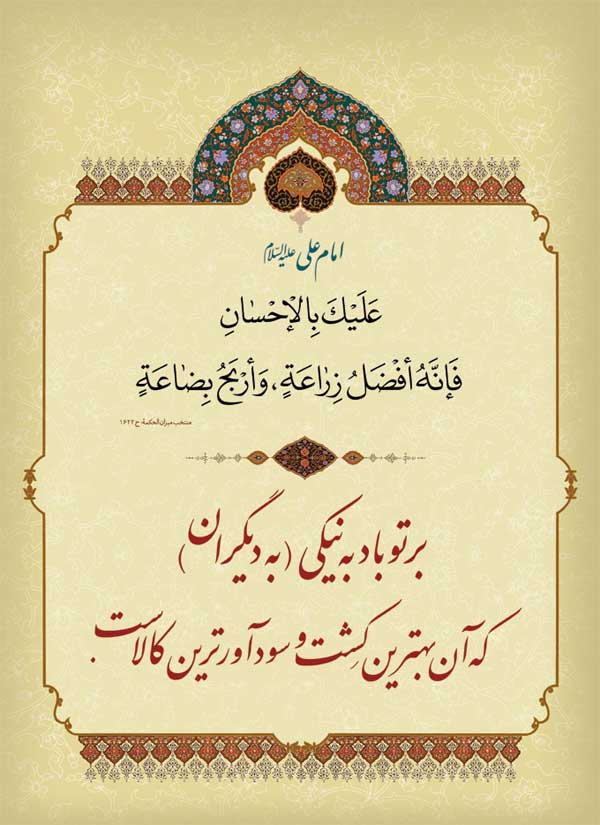 امام علی علیه‌السّلام
عَلَيْكَ بِالْإحْسٰانِ
فَإنَّهُ أفْضَلُ زِرٰاعَةٍ، وَأرْبَحُ بِضٰاعَةٍ
منتخب میزان الحکمة، ح ۱۶۲۲
بر تو باد به نیکی (به دیگران)
که آن بهترین کِشت و سودآورترین کالاست.